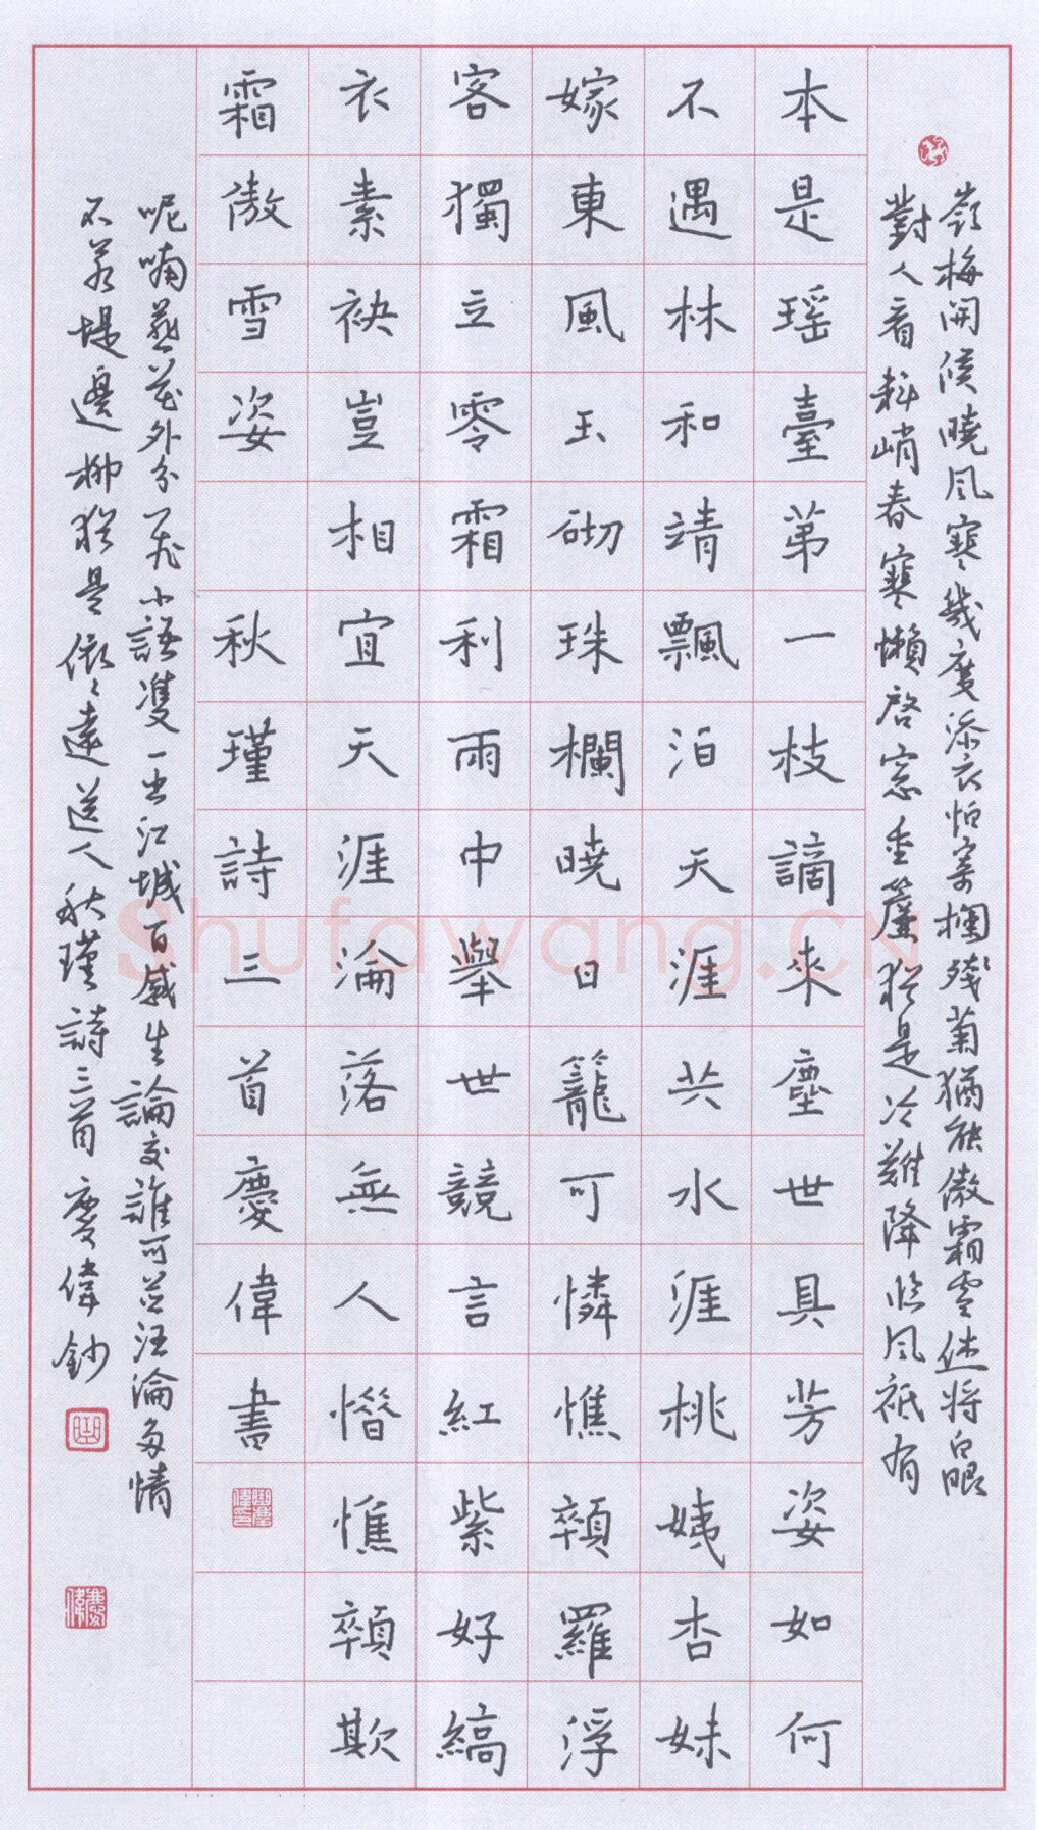 嶺梅開候曉風寒幾度添衣怕寄欄殘菊猶能傲霜雪休將白眼
對人看料峭春寒懶啓窓垂簾猶是冷難降臨風祇有
本是瑶臺第一枝謫來塵世具芳姿如何
不遇林和靖飄泊天涯共水涯桃姨杏妹
嫁東風玉砌珠欄曉日籠可憐憔顇羅浮
客獨立零霜利雨中舉世競言紅紫好縞
衣素袂豈相宜天涯淪落無人惜憔顇欺
霜傲雪姿 秋瑾詩三首慶偉書
呢喃燕花外分飛小語雙一出江城百感生論交誰可並汪淪多情
不若堤邊柳猶是依々遠送人秋瑾詩三首慶偉鈔
Shufawang.CN